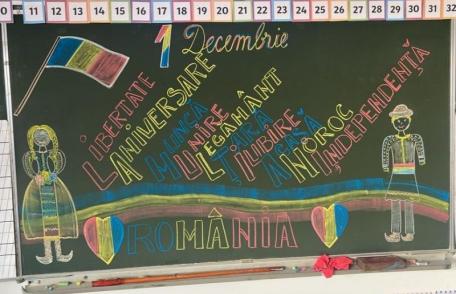 11 12 13 14 15 16 17 18 19 20 21 22 23 24 25 26 27 28 29 30 31 32
1 Decembrie
LIBERTATE
ANIVERSARE
MUNCĂ
UNIRE
LEGĂMÂNT
ȚARĂ
ACASĂ
NOROC
INDEPENDENȚĂ
ROMÂNIA